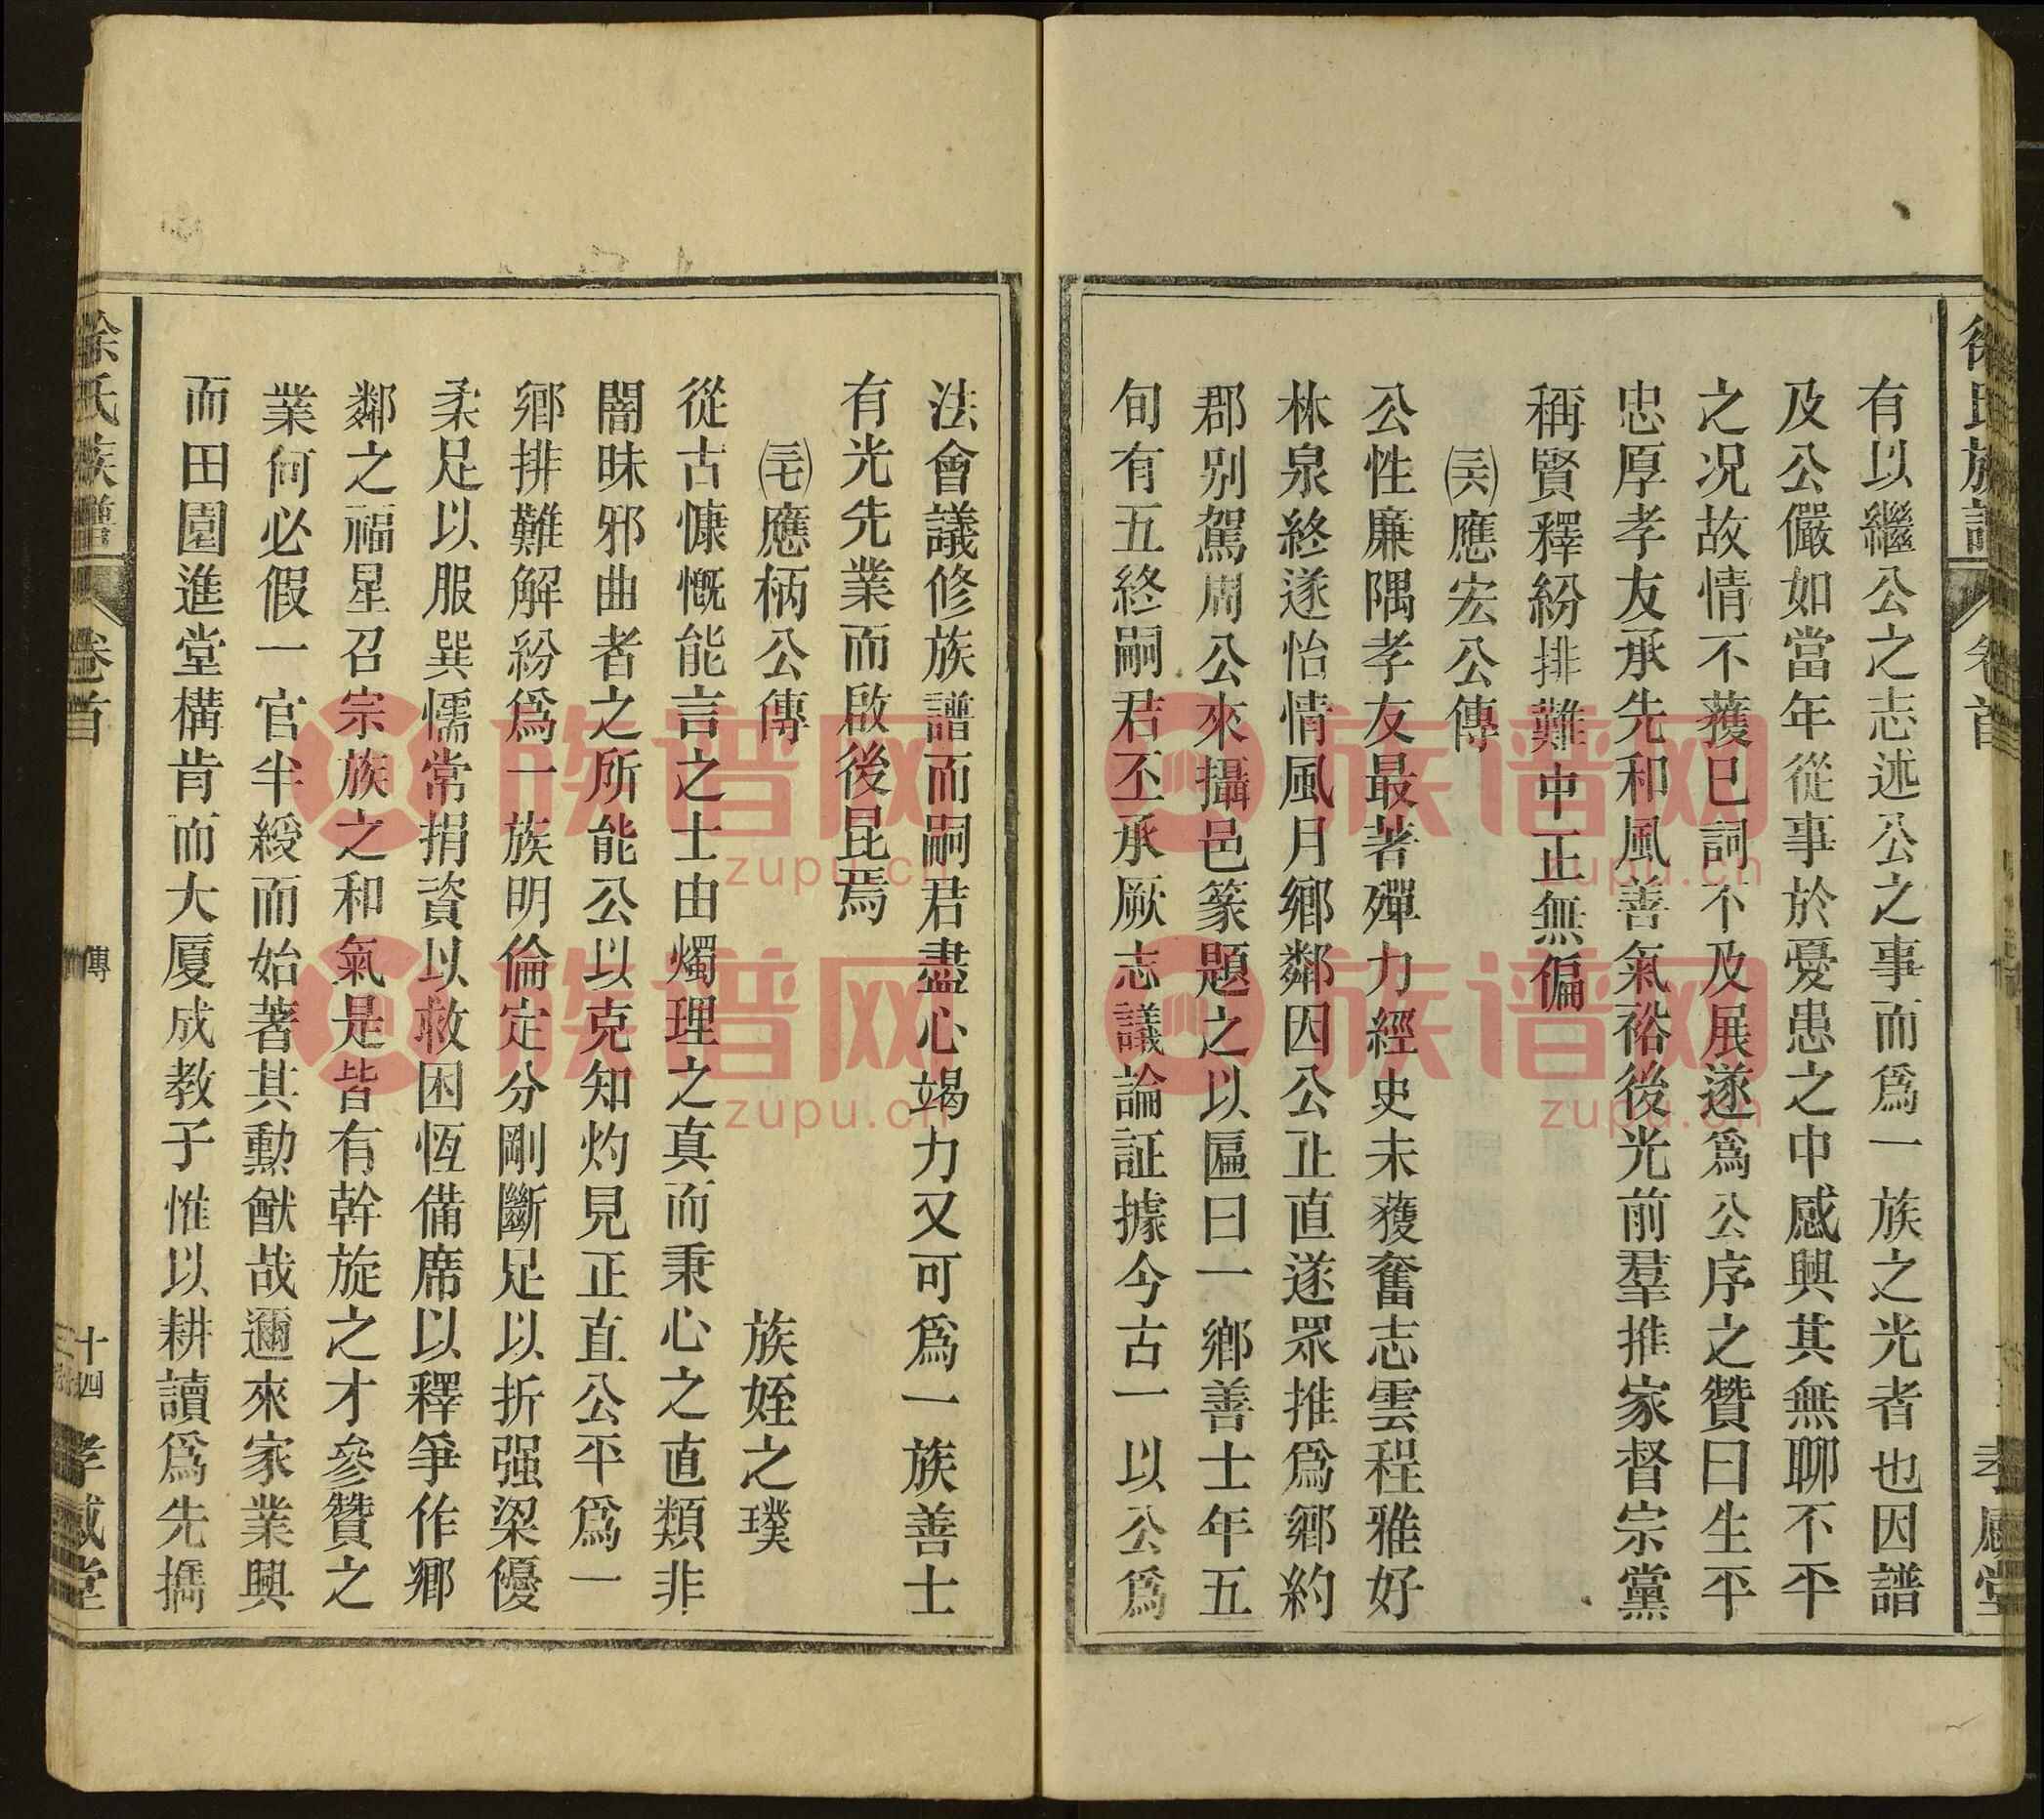 徐氏族譜 卷首 孝感堂
有以繼公之志述公之事而爲一族之光者也因譜
及公儼如當年從事於憂患之中感興其無聊不平
之况故情不蒦已詞不及展遂爲公序之贊曰生平
忠厚孝友承先和風善氣裕後光前羣推家督宗黨
稱賢釋紛排難中正無偏
㊂六應宏公傳
公性廉隅孝友最著殫力經史未獲奮志雲程雅好
林泉終遂怡情風月鄉鄰因公正直遂眾推爲鄉約
郡别駕周公來攝邑篆題之以匾曰一鄉善士年五
旬有五終嗣君丕承厥志議論証據今古一以公爲
法會議修族譜而嗣君盡心竭力又可爲一族善士
有光先業而啟後昆焉
三七應柄公傳 族姪之璞
從古慷慨能言之士由燭理之真而秉心之直類非
闇昧邪曲者之所能公以克知灼見正直公平爲一
鄉排難解紛爲一族明倫定分剛斷足以折强梁優
柔足以服巽懦常捐資以救困恆備席以釋爭作鄉
鄰之福星召宗族之和氣是皆有幹旋之才參贊之
業何必假一官半綬而始著其勳猷哉邇來家業興
而田園進堂構肯而大厦成教子惟以耕讀爲先擕
徐氏族譜 卷首 傳 十四 孝感堂
zupu.cn
族谱网
zupu.cn
族谱网
zupu.cn
族谱网
zupu.cn
族谱网